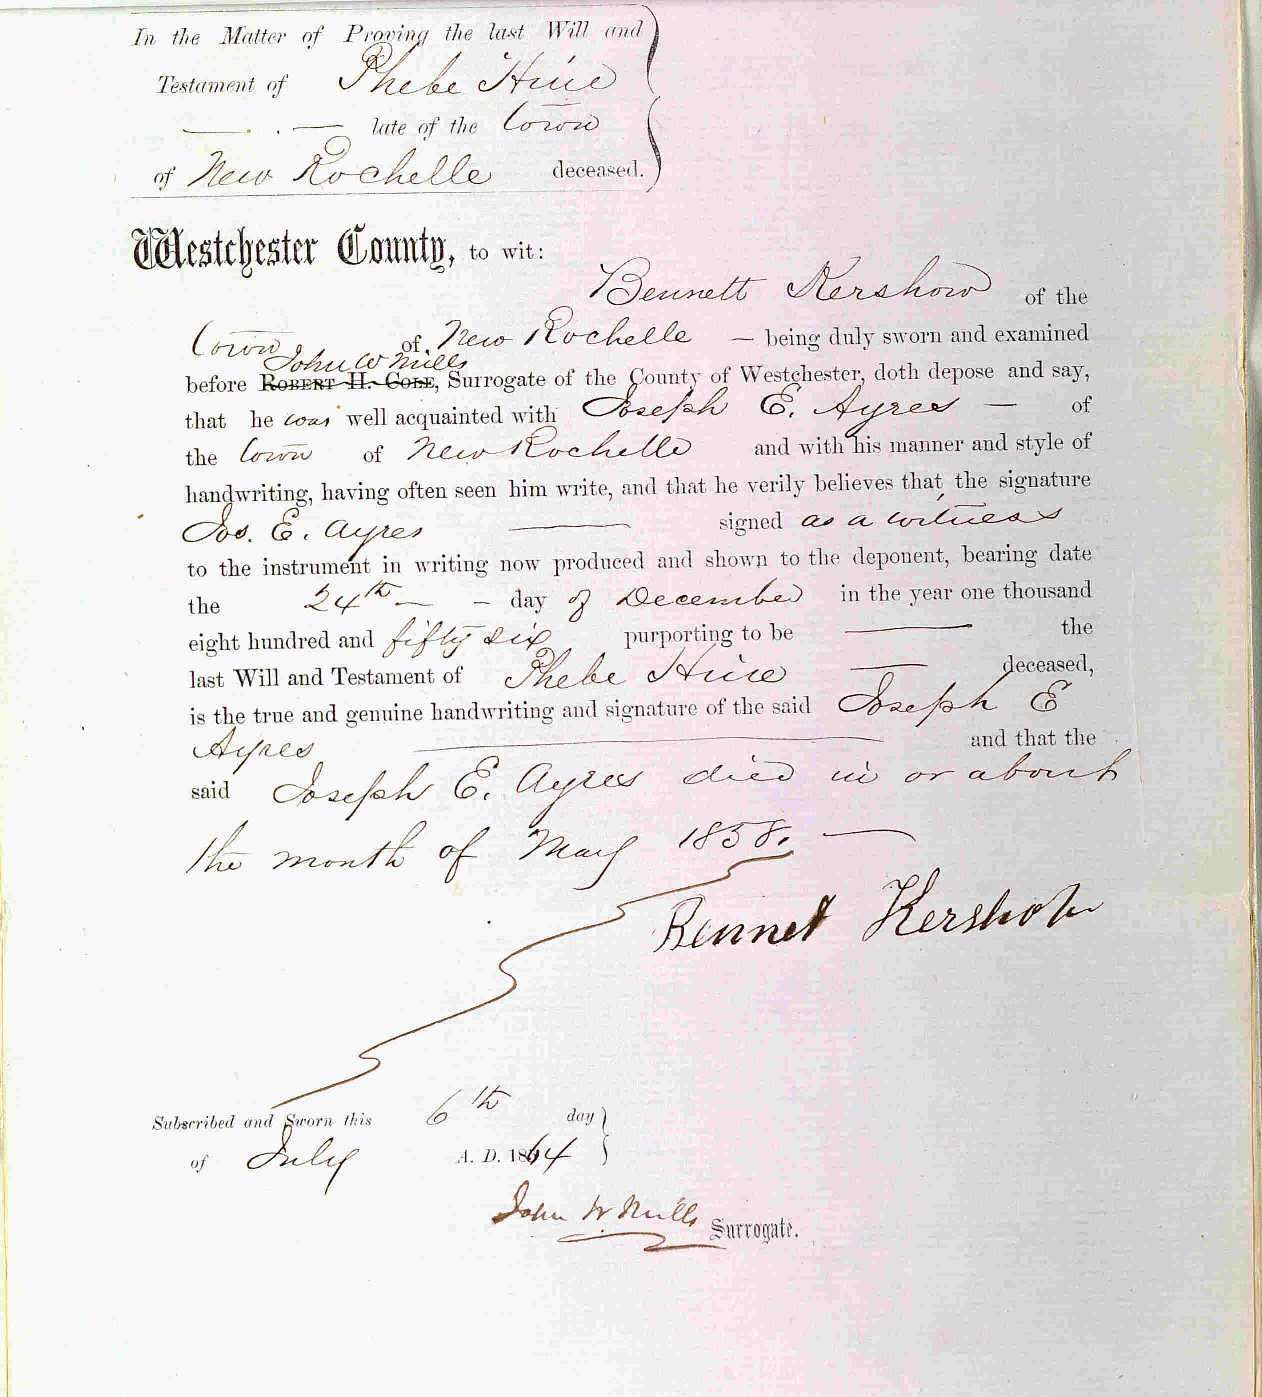 In the Matter of Proving the last Will and
Testament of Phebe Hine
late of the Town
of New Rochelle deceased.
Westchester County, to wit:
Bennett Kershow of the
Town of New Rochelle — being duly sworn and examined
John W Mills
before ROBERT H. COLE, Surrogate of the County of Westchester, doth depose and say,
that he was well acquainted with Joseph E. Ayres — of
the Town of New Rochelle and with his manner and style of
handwriting, having often seen him write, and that he verily believes that the signature
Jos. E. Ayres — signed as a witness
to the instrument in writing now produced and shown to the deponent, bearing date
the 24th — — day of December in the year one thousand
eight hundred and fifty six purporting to be — the
last Will and Testament of Phebe Hine — deceased,
is the true and genuine handwriting and signature of the said Joseph E
Ayres — and that the
said Joseph E. Ayres died in or about
the month of May 1858. —
Bennet Kershow
Subscribed and Sworn this 6th day
of July A. D. 1864
John W Mills Surrogate.